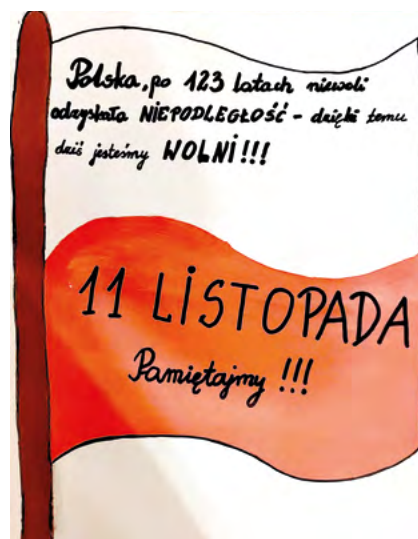 Polska, po 123 latach niewoli
odzyskała NIEPODLEGŁOŚĆ - dzięki temu
dziś jesteśmy WOLNI!!!
11 LISTOPADA
Pamiętajmy !!!